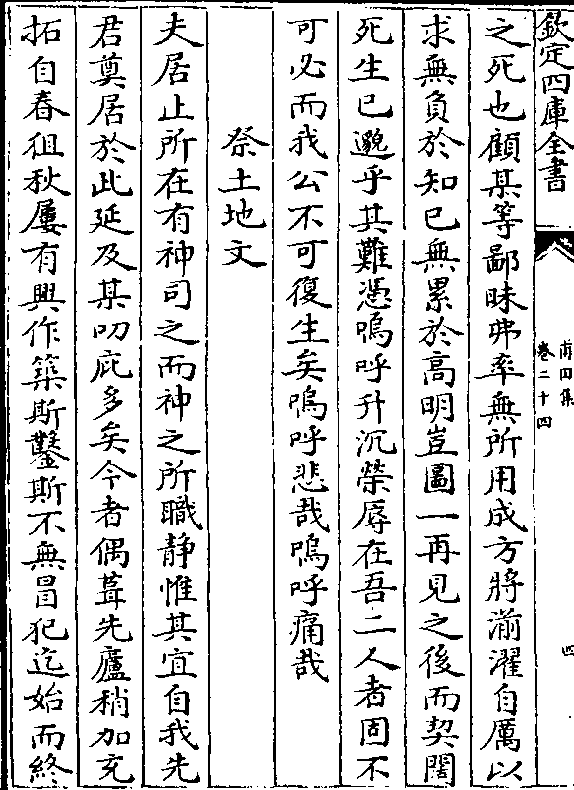 欽定四庫全書
莆田集
卷二十四
四
之死也顧某等鄙昧弗率無所用成方將湔濯自厲以
求無負於知已無累於高明豈圖一再見之後而契闊
死生已邈乎其難憑嗚呼升沉榮辱在吾二人者固不
可必而我公不可復生矣嗚呼悲哉嗚呼痛哉
祭土地文
夫居止所在有神司之而神之所職靜惟其宜自我先
君奠居於此延及某叨庇多矣今者偶葺先廬稍加充
拓自春徂秋屢有興作築斯鑿斯不無冒犯迄始而終